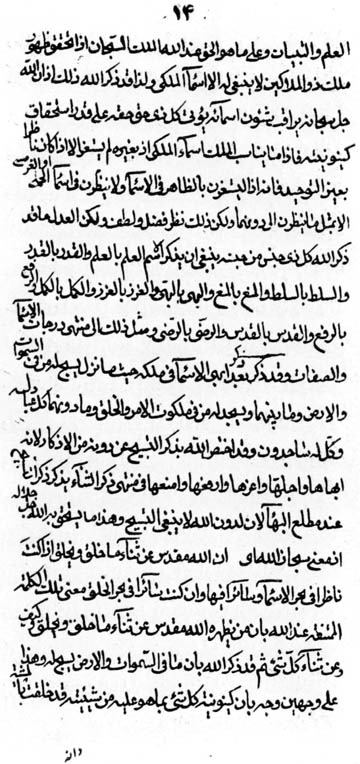 ١٤
العلم والتبيان وعلى ما هو الحق عند الله الملك السبحان اذا تحقق ظهور
ملك ذو الملاكين لا ينبغي له الا اسماء الملكي ولذا قد ذكر الله ذلك اذ ان الله
جل سبحانه يراقب شئون اسمائه يؤتي كل ذي حق حقه على قدر استحقاق
كينونيته فاذا ما يناسب الملك اسماء الملكي اذ بغيره لم ينبغ الا اذا كان ناظرا
بعين التوحيد فانه اذا ليستغرن بالظاهر في الاسماء ولا ينظرن في اسماء
الامثل ما ينظرن الى دونها ولكن ذلك نظر فضل ولطف ولكن العدل ما قد
ذكر الله كل ذي جنس من جنسه ينبغي ان يذكر اسم العلم بالعلم والقدر بالقدر
والسلط بالسلط والمنع بالمنع والبهي بالبهي والعزز بالعزز والكمل بالكمل والرفع
بالرفع والقدس بالقدس والرضي بالرضي ومثل ذلك الى منتهى درجات الاسماء
والصفات وقد ذكر بعد ابهى الاسماء في ملكه حيث ما نزل يسبح له من في السموات
والارض وما بينهما ويسجد له من في ملكوت الامر والخلق وما دونهما كل عباد له
وكل له ساجدون وقد اختص الله بذكر التسبيح عن دونه من الاذكار لانه
ابهاها واجلها واعزها وارفعها وامنعها في منتهى ذكر الثناء يذكر ذكر
عند مطلع البهاء لان لدون الله لا ينبغي التسبيح وهذا ما يستحق به الله جل جلاله
ان معنى سبحان الله اي ان الله مقدس عن ثناء ما خلق ويخلق ان كنت
ناظرا في بحر الاسماء وسائرا فيها وان كنت سائرا في بحر الخلق معنى تلك الكلمة
الممتنعة عند الله بان من يظهره الله مقدس عن ثناء ما خلق ويخلق
وعن ثناء كل شئ ثم قد ذكر الله بان ما في السموات والارض يسبح له وهذا
على وجهين وجه بان كينونية كل شئ بما هو عليه من شيئيته قد خلقت